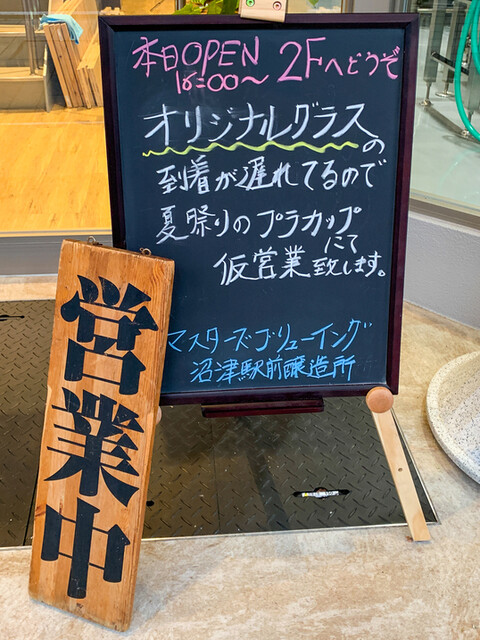 本日OPEN 2Fへどうぞ
16:00〜
オリジナルグラスの
到着が遅れてるので
夏祭りのプラカップ
にて
仮営業致します。
マスターズブリューイング
沼津駅前醸造所
営業中